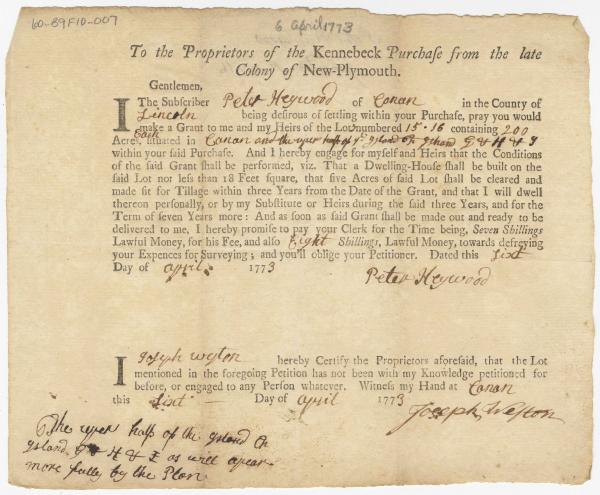 60-89F10-007
6 April 1773
To the Proprietors of the Kennebeck Purchase from the late
Colony of New-Plymouth.
Gentlemen,
I The Subscriber Peter Heywood of Canan in the County of
Lincoln being desirous of settling within your Purchase, pray you would
make a Grant to me and my Heirs of the Lot numbered 15-16 containing 200
Each
Acres, situated in Canan and the uper half of ye Island or Island G & H & I
within your said Purchase. And I hereby engage for myself and Heirs that the Conditions
of the said Grant shall be performed, viz. That a Dwelling-House shall be built on the
said Lot nor less than 18 Feet square, that five Acres of said Lot shall be cleared and
made fit for Tillage within three Years from the Date of the Grant, and that I will dwell
thereon personally, or by my Substitute or Heirs during the said three Years, and for the
Term of seven Years more: And as soon as said Grant shall be made out and ready to be
delivered to me, I hereby promise to pay your Clerk for the Time being, Seven Shillings
Lawful Money, for his Fee, and also Eight Shillings, Lawful Money, towards defreying
your Expences for Surveying; and you'll oblige your Petitioner. Dated this Sixt
Day of april 1773
Peter Heywood
I Joseph Weston hereby Certify the Proprietors aforesaid, that the Lot
mentioned in the foregoing Petition has not been with my Knowledge petitioned for
before, or engaged to any Person whatever. Witness my Hand at Canan
this Sixt Day of april 1773
Joseph Weston
The uper half of the Island or
Island G & H & I as will apear
more fully by the Plan